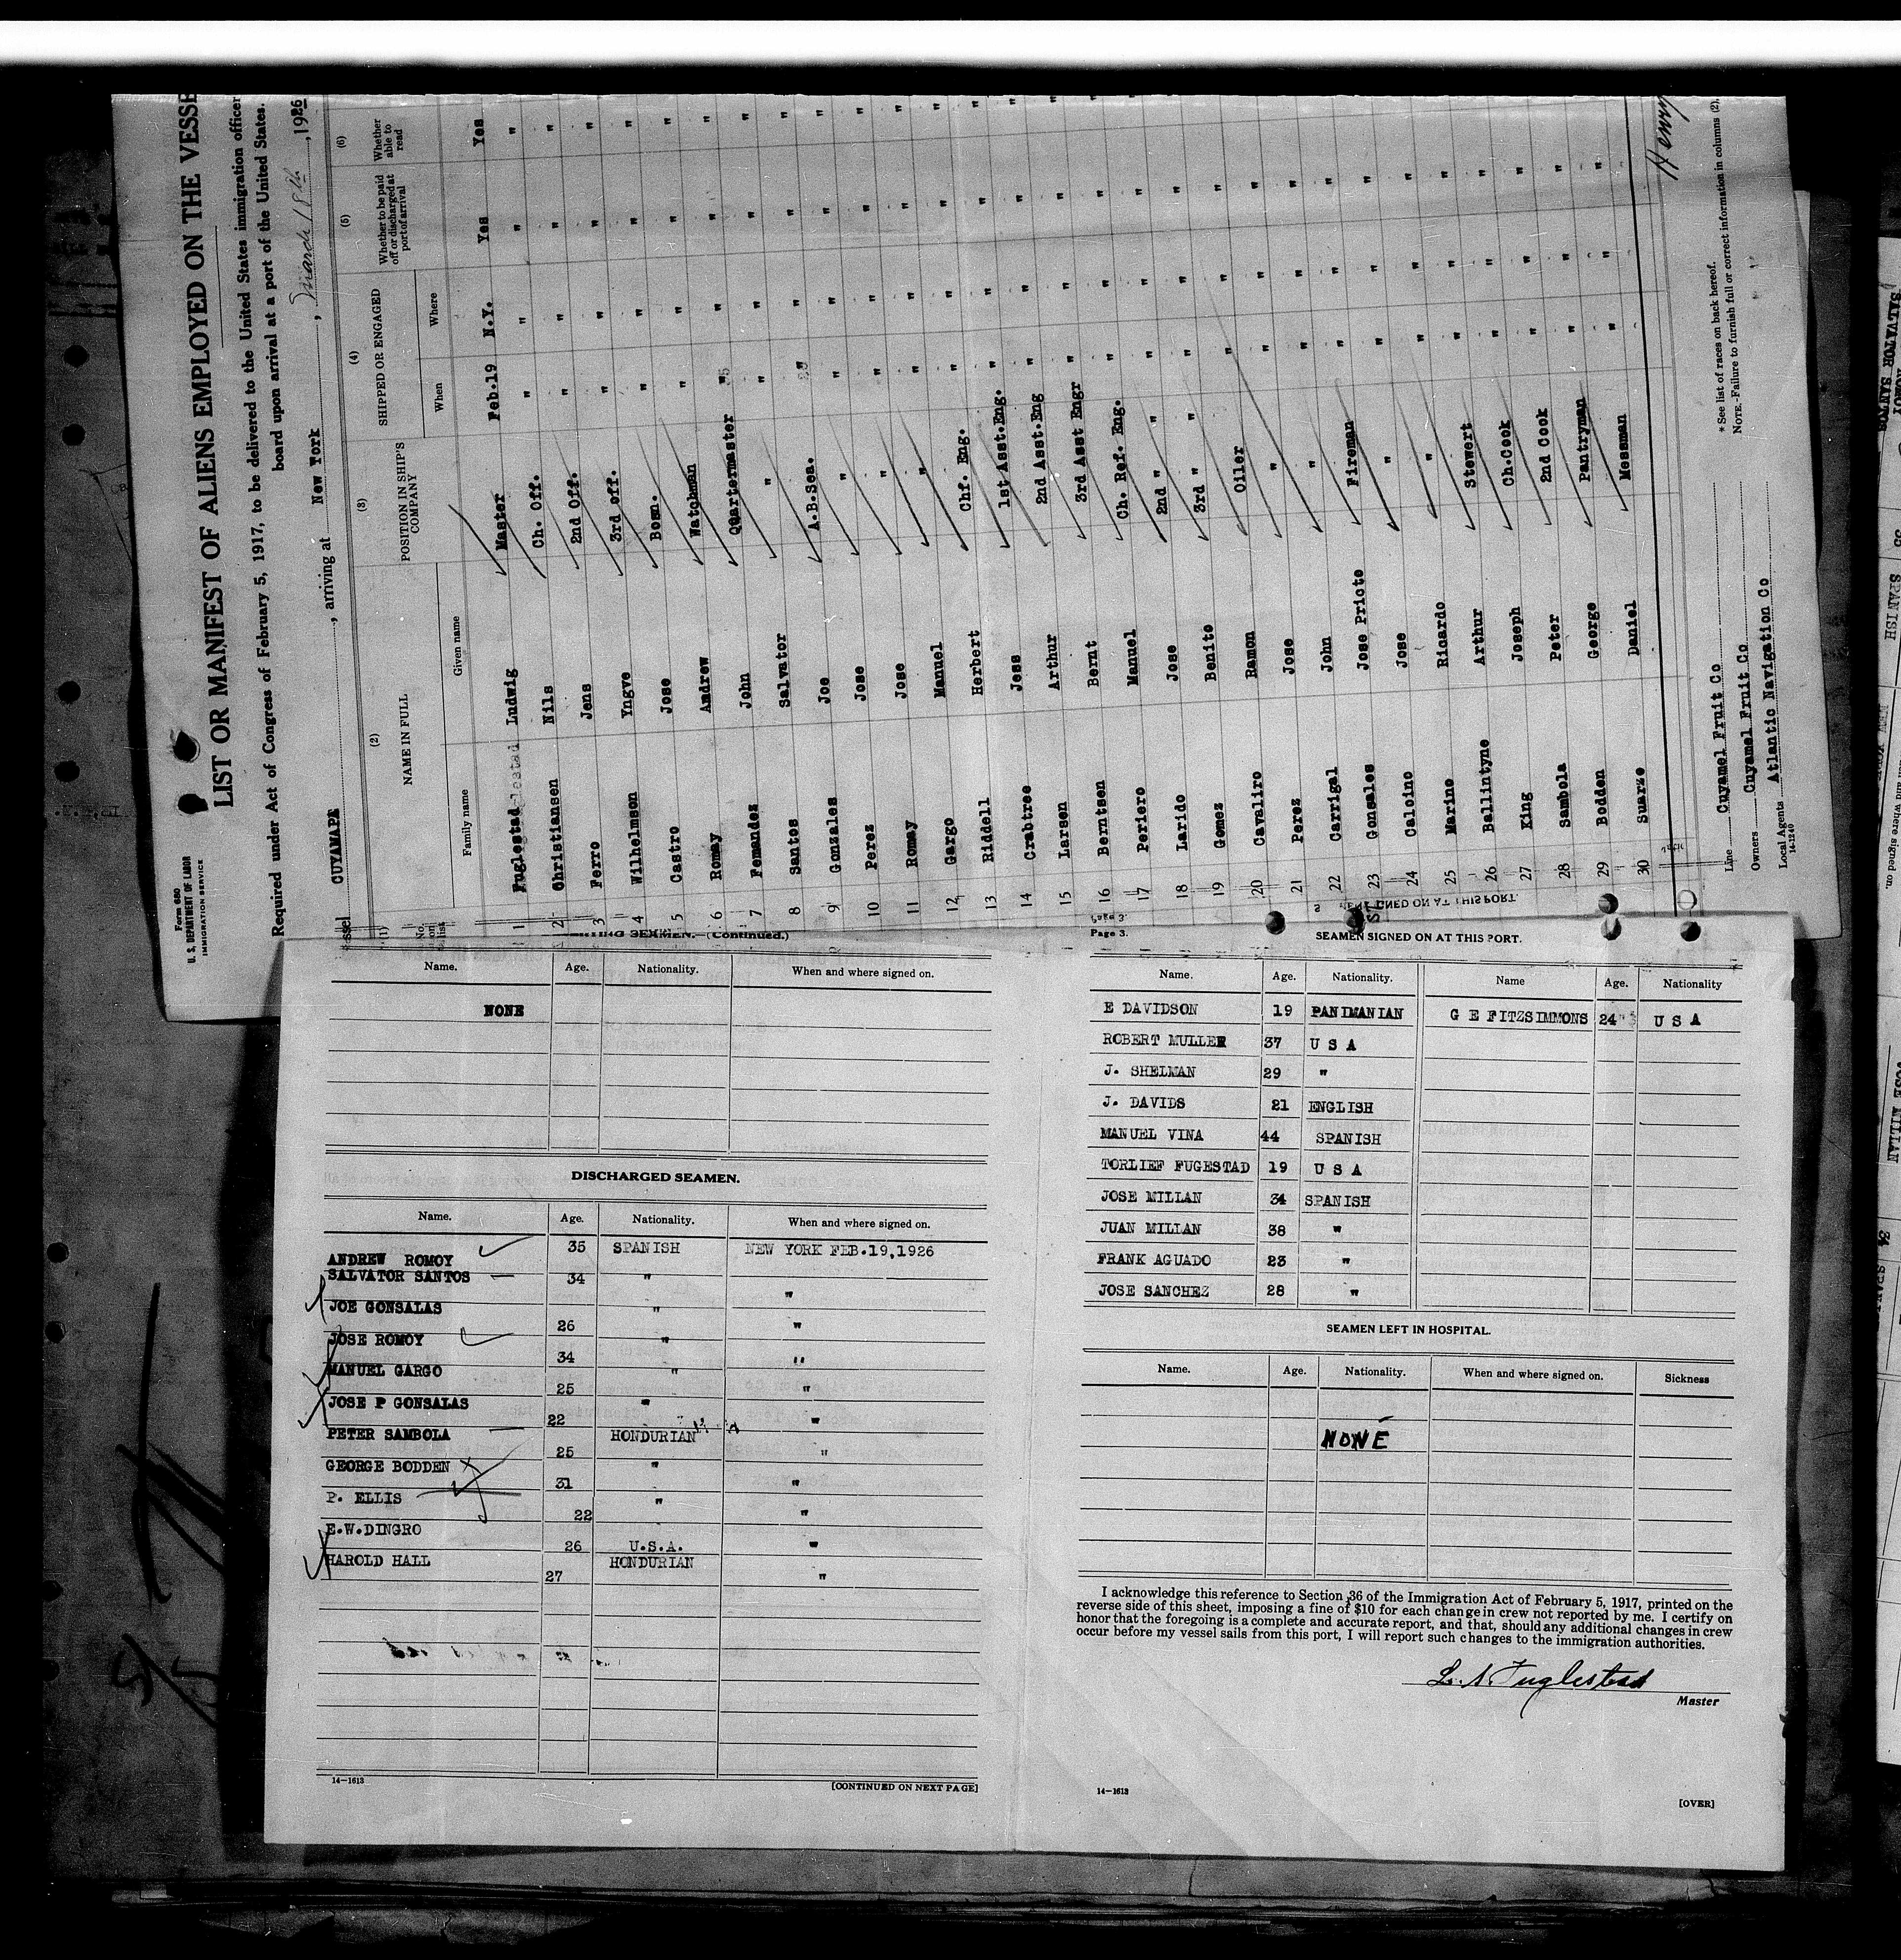 Form 680
U. S. DEPARTMENT OF LABOR
IMMIGRATION SERVICE
LIST OR MANIFEST OF ALIENS EMPLOYED ON THE VESSE
Required under Act of Congress of February 5, 1917, to be delivered to the United States immigration officer
board upon arrival at a port of the United States.
essel CUYAMAPA , arriving at New York , March 18th , 1926
(1) (2) (3) (4) (5) (6)
No. on list NAME IN FULL POSITION IN SHIP'S COMPANY SHIPPED OR ENGAGED Whether to be paid off or discharged at port of arrival Whether able to read
Family name Given name When Where
1 Fuglestad Ludwig Master Feb.19 N.Y. Yes Yes
2 Christiansen Nils Ch. Off. " " " "
3 Ferro Jens 2nd Off. " " " "
4 Wilhelmson Yngve 3rd off. " " " "
5 Castro Jose Bosn. " " " "
6 Romay Andrew Watchman " " " "
7 Fernandez John Quartermaster " " " "
8 Santos Salvator " " " " "
9 Gonzales Joe A.B.Sea. " " " "
10 Perez Jose " " " " "
11 Romay Jose " " " " "
12 Gargo Manuel " " " " "
13 Riddell Herbert Chf. Eng. " " " "
14 Crabtree Jess 1st Asst.Eng. " " " "
15 Larsen Arthur 2nd Asst.Eng " " " "
16 Berntsen Bernt 3rd Asst Engr " " " "
17 Periero Manuel Ch. Ref. Eng. " " " "
18 Larido Jose 2nd " " " " "
19 Gomez Benito 3rd " " " "
20 Cavaliro Ramon Oiler " " "
21 Perez Jose " " " "
22 Carrigal John " " " "
23 Gonsales Jose Prioto Fireman " " "
24 Caloino Jose " " " "
25 Marino Ricardo " " " "
26 Ballintyne Arthur Stewert " " "
27 King Joseph Ch.Cook " " "
28 Sambola Peter 2nd Cook " " "
29 Bodden George Pantryman " " "
30 Suarze Daniel Messman " " "
Henry
Line Cuyamel Fruit Co
Owners Cuyamel Fruit Co
Local Agents Atlantic Navigation Co
14-1240
* See list of races on back hereof.
NOTE.-Failure to furnish full or correct information in columns (2),
SEAMEN.—(Continued.)
Name. Age. Nationality. When and where signed on.
NONE
DISCHARGED SEAMEN.
Name. Age. Nationality. When and where signed on.
ANDREW ROMOY 35 SPANISH NEW YORK FEB.19,1926
SALVATOR SANTOS 34 " "
JOE GONSALAS 26 " "
JOSE ROMOY 34 " "
MANUEL GARGO 25 " "
JOSE P GONSALAS 22 " "
PETER SAMBOLA 25 HONDURIAN "
GEORGE BODDEN 31 " "
P. ELLIS 22 " "
E.W.DINGRO 26 U.S.A. "
HAROLD HALL 27 HONDURIAN "
14—1613
[CONTINUED ON NEXT PAGE]
Page 3.
SEAMEN SIGNED ON AT THIS PORT.
Name. Age. Nationality. Name Age. Nationality
E DAVIDSON 19 PANIMANIAN G E FITZSIMMONS 24 U S A
ROBERT MULLER 37 U S A
J. SHELMAN 29 "
J. DAVIDS 21 ENGLISH
MANUEL VINA 44 SPANISH
TORLIEF FUGESTAD 19 U S A
JOSE MILLAN 34 SPANISH
JUAN MILLAN 38 "
FRANK AGUADO 23 "
JOSE SANCHEZ 28 "
SEAMEN LEFT IN HOSPITAL.
Name. Age. Nationality. When and where signed on. Sickness
NONE
I acknowledge this reference to Section 36 of the Immigration Act of February 5, 1917, printed on the
reverse side of this sheet, imposing a fine of $10 for each change in crew not reported by me. I certify on
honor that the foregoing is a complete and accurate report, and that, should any additional changes in crew
occur before my vessel sails from this port, I will report such changes to the immigration authorities.
L. A. Fuglestad
Master
14—1613
[OVER]
SALVATOR SANTOS
SPANISH